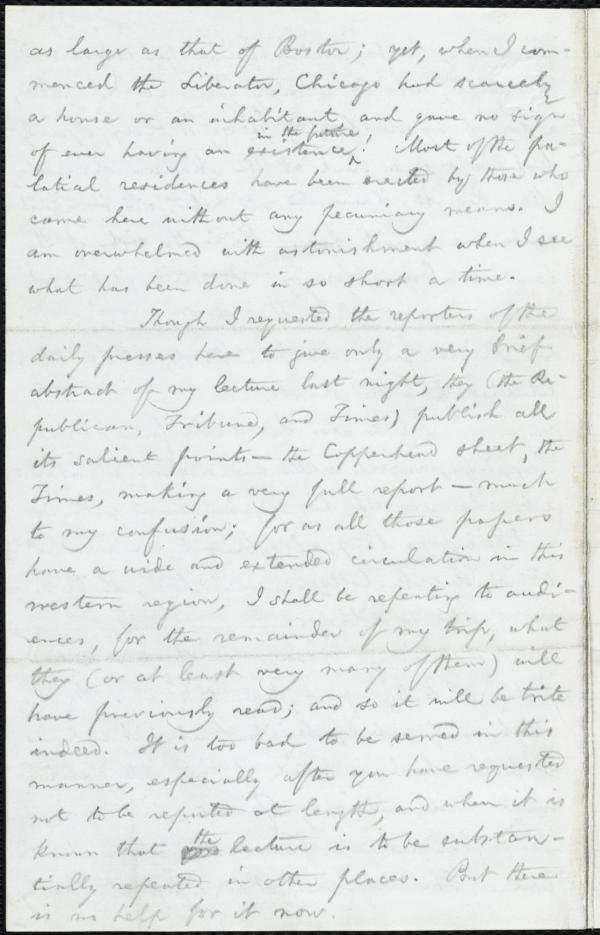 as large as that of Boston; yet, when I com-
menced the Liberator, Chicago had scarcely
a house or an inhabitant, and gave no sign
of ever having an existence in the future! Most of the pa-
latial residences have been erected by those who
came here without any pecuniary means. I
am overwhelmed with astonishment when I see
what has been done in so short a time.
Though I requested the reporters of the
daily presses here to give only a very brief
abstract of my lecture last night, they (the Re-
publican, Tribune, and Times) publish all
its salient points — the Copperhead sheet, the
Times, making a very full report — much
to my confusion; for as all those papers
have a wide and extended circulation in this
western region, I shall be repeating to audi-
ences, for the remainder of my trip, what
they (or at least very many of them) will
have previously read; and so it will be trite
indeed. It is too bad to be served in this
manner, especially after you have requested
not to be reported at length, and when it is
known that the lecture is to be substan-
tially repeated in other places. But there
is no help for it now.